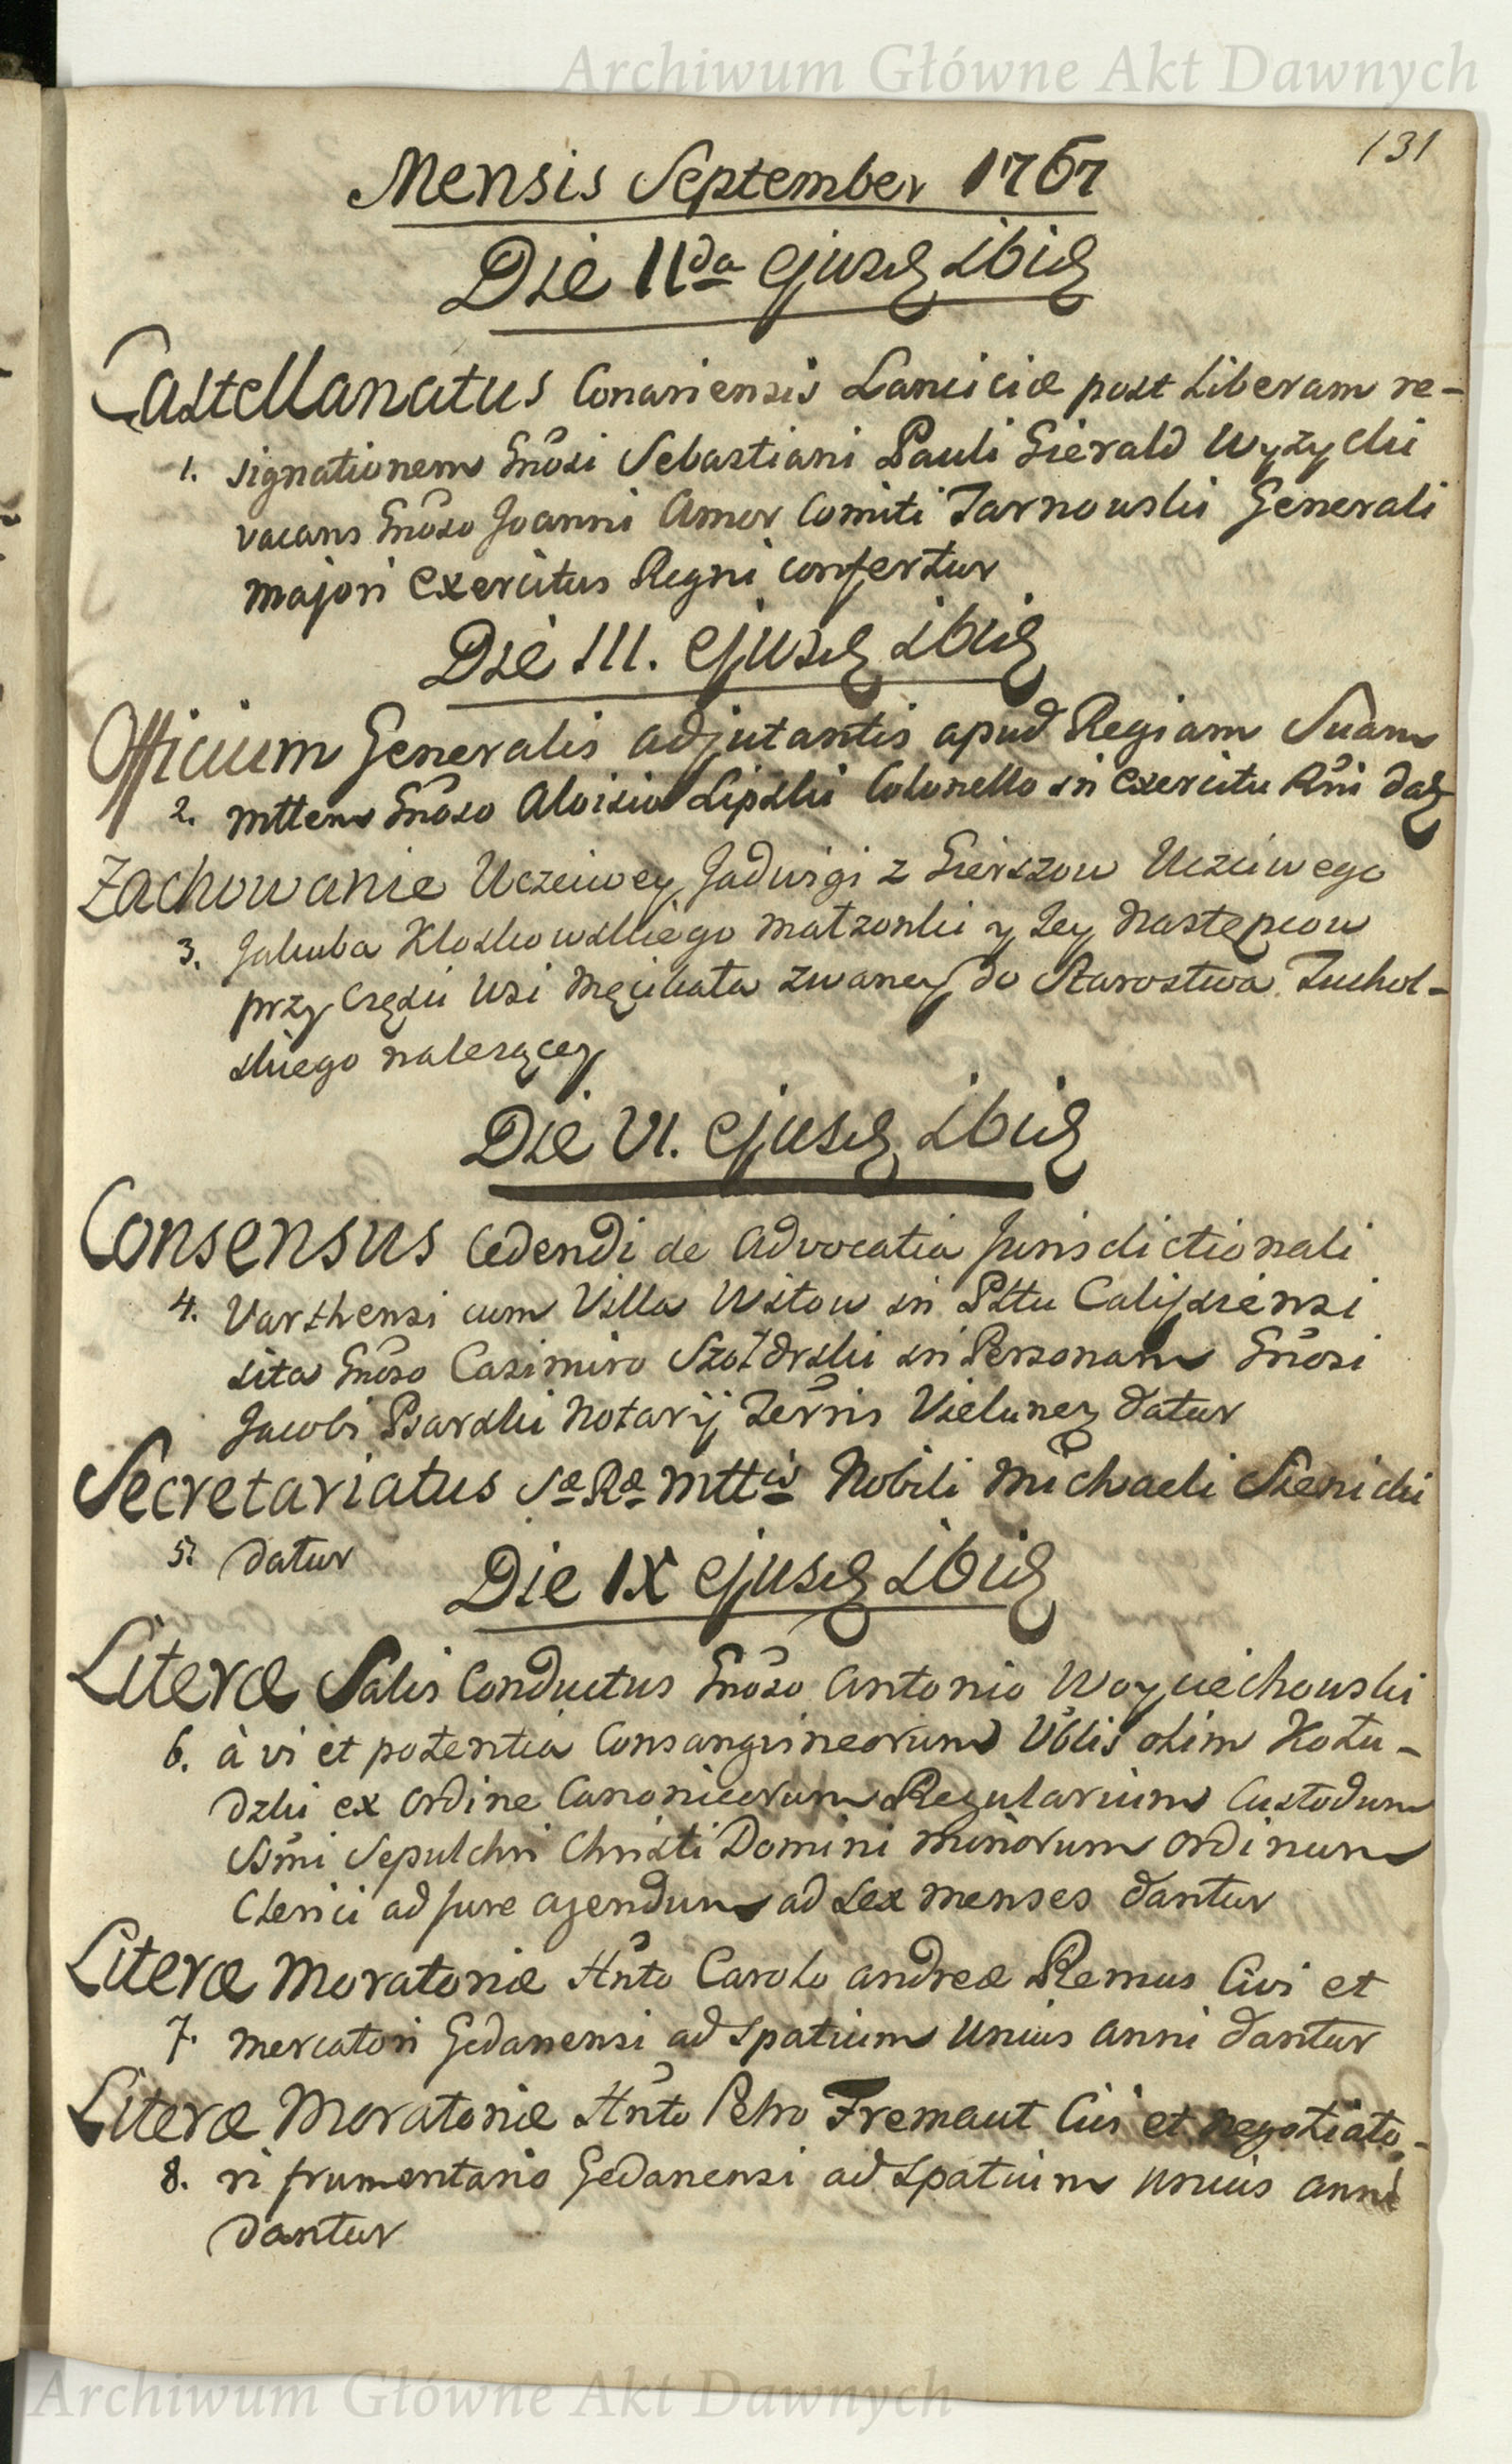 Archiwum Główne Akt Dawnych
131
Mensis September 1767
Die IIda ejusd ibid
Castellanatus Conariensis Lanciciæ post liberam re-
1. signationem Gnosi Sebastiani Pauli Gierald Wyzycki
vacans Gnoso Joanni Amor Comiti Tarnowski Generali
majori Exercitus Regni confertur
Die III. ejusd ibid
Officium Generalis adjutantis apud Regiam Suam
2. mttem Gnoso Aloisio Lipski Colonello in Exercitu Rni datr
Zachowanie Uczciwey Jadwigi z Gierszow Uczciwego
3. Jakuba Kloskowskiego małzonki y Jey Następcow
przy Częsci Wsi Męcikała zwaney do Starostwa Tuchol-
skiego nalezącey
Die VI. ejusd ibid
Consensus Cedendi de Advocatia Jurisdictionali
4. Varthensi cum Villa Witow in Pttu Calissiensi
sita Gnoso Casimiro Szołdrski in Personam Gnosi
Jacobi Psarski Notarij Terris Vielunen datur
Secretariatus Sæ Ræ Mttis Nobili Michaeli Sienicki
5. datur
Die IX ejusd ibid
Literæ Salis Conductus Gnoso Antonio Woyciechowski
6. à vi et potentia Consangvineorum Vblis olim Kołu-
dzki ex Ordine Canonicorum Regularium Custodum
SSmi Sepulchri Christi Domini minorum ordinum
Clerici ad Jure agendum ad sex menses dantur
Literæ Moratoriæ Hnto Carolo Andreæ Remus Civi et
7. mercatori Gedanensi ad spatium Unius anni dantur
Literæ Moratoriæ Hnto Petro Fremaut Civi et negotiato-
8. ri frumentario Gedanensi ad spatium unius anni
dantur
Archiwum Główne Akt Dawnych